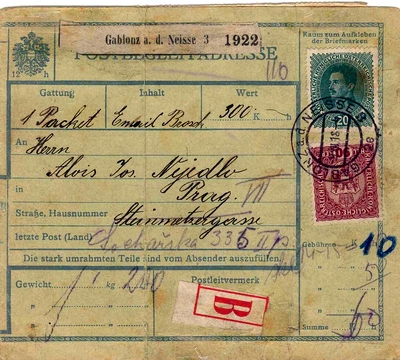 Gablonz a. d. Neisse 3 1922
POSTBEGLEITADRESSE
Raum zum Aufkleben
der Briefmarken
12 h
116
Gattung Inhalt Wert
1 Packet Email Brosch 300 K h
An
Herrn
Alois Jos. Nejedlo
in Prag. VII
Straße, Hausnummer Steinmetzgasse
letzte Post (Land) Sochařska 335 II p.
Die stark umrahmten Teile sind vom Absender auszufüllen.
Gebühren 10
Gewicht kg 240 Postleitvermerk
5
B
Summe 60
20
GABLONZ a. d. NEISSE